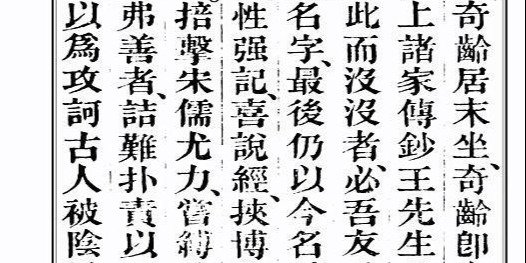 奇齡居末坐、奇齡卽
上諸家傳鈔王先生
此而沒沒者、必吾友
名字、最後仍以今名
性强記、喜說經、挾博
掊擊宋儒尤力、嘗縛
弗善者、詰難扑責以
以爲攻訶古人被陰